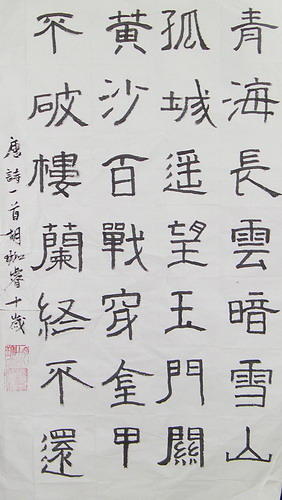 青海長雲暗雪山
孤城遥望玉門關
黃沙百戰穿金甲
不破樓蘭終不還
唐詩一首胡珈睿十歲